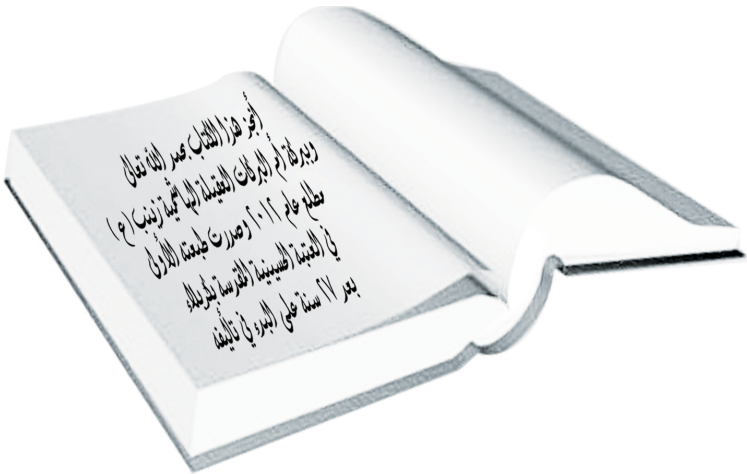 أنجز هذا الكتاب بحمد الله تعالى
وببركة أم البركات العقيلة الهاشمية زينب (ع)
مطلع عام ٢٠١٢ وصدرت طبعته الأولى
في العتبة الحسينية المقدسة بكربلاء
بعد ١٧ سنة على البدء في تأليفه